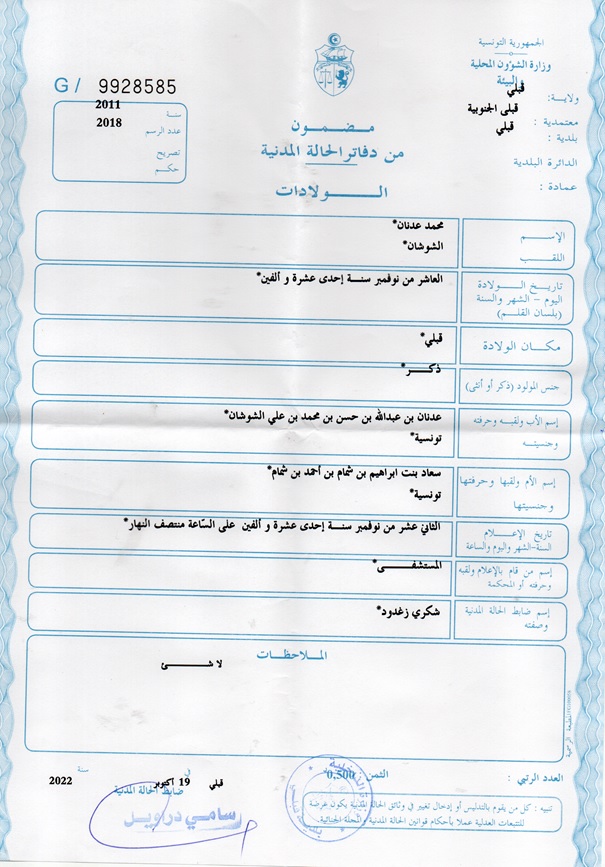 الجمهورية التونسية
وزارة الشؤون المحلية
والبيئة
ولاية: قبلي
معتمدية : قبلى الجنوبية
بلدية : قبلي
الدائرة البلدية
عمادة :
G / 9928585
سنة 2011
عدد الرسم 2018
تصريح
حكم
مضمون
من دفاتر الحالة المدنية
الولادات
الإسم محمد عدنان*
اللقب الشوشان*
تاريخ الولادة العاشر من نوفمبر سنة إحدى عشرة و ألفين*
اليوم - الشهر والسنة
(بلسان القلم)
مكان الولادة قبلي*
جنس المولود (ذكر أو أنثى) ذكر*
إسم الأب ولقبه وحرفته عدنان بن عبدالله بن حسن بن محمد بن علي الشوشان*
وجنسيته تونسية*
إسم الأم ولقبها وحرفتها سعاد بنت ابراهيم بن شمام بن أحمد بن شمام*
وجنسيتها تونسية*
تاريخ الإعلام الثاني عشر من نوفمبر سنة إحدى عشرة و ألفين على السّاعة منتصف النهار*
السنة-الشهر واليوم والساعة
إسم من قام بالإعلام ولقبه المستشفى*
وحرفته أو المحكمة
إسم ضابط الحالة المدنية شكري زغدود*
وصفته
الملاحظات
لا شئ
المطبعة الرسمية
العدد الرتبي : الثمن: 0,500
قبلي في 19 أكتوبر سنة 2022
ضابط الحالة المدنية
سامي دراويل
تنبيه : كل من يقوم بالتدليس أو إدخال تغيير في وثائق الحالة المدنية يكون عرضة
للتتبعات العدلية عملا بأحكام قوانين الحالة المدنية والمجلة الجنائية.